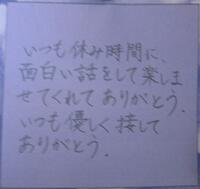 いつも休み時間に、
面白い話をして楽しま
せてくれてありがとう.
いつも優しく接して
ありがとう.